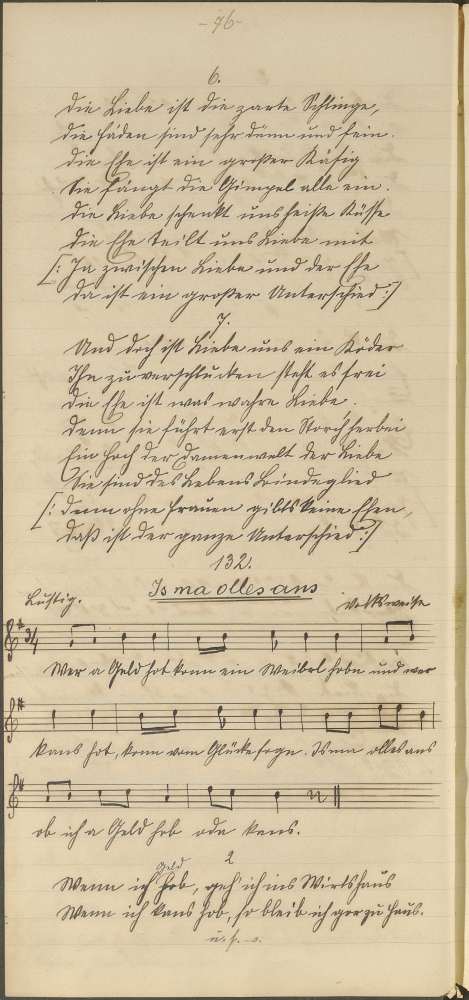 -76-
6.
Die Liebe ist die zarte Schlinge,
Die Fäden sind sehr dünn und fein.
Die Ehe ist ein großer Käfig
Sie fängt die Gimpel alle ein.
Die Liebe schenkt uns heiße Küsse
Die Ehe teilt uns Liebe mit
[: Ja zwischen Liebe und der Ehe
Da ist ein großer Unterschied :]
7.
Und doch ist Liebe uns ein Köder
Ihn zu verschlucken steht es frei
Die Ehe ist was wahre Liebe.
Denn sie führt erst den Storch herbei
Ein Hoch der Damenwelt der Liebe
Sie sind des Lebens Bindeglied
[: Denn ohne Frauen gibts keine Ehen,
Daß ist der ganze Unterschied :]
132.
Is ma olles ans
Lustig. Volksweise
3/4
Wer a Geld hot konn ein Weiberl hobn und wer
kans hot, konn vom Glücke sogn. Is ma olles ans
ob ich a Geld hob oda kans.
2
Geld
Wenn ich hob, geh' ich ins Wirtshaus
Wenn ich kans hob, so bleib ich gor zu Haus.
u. s. w.